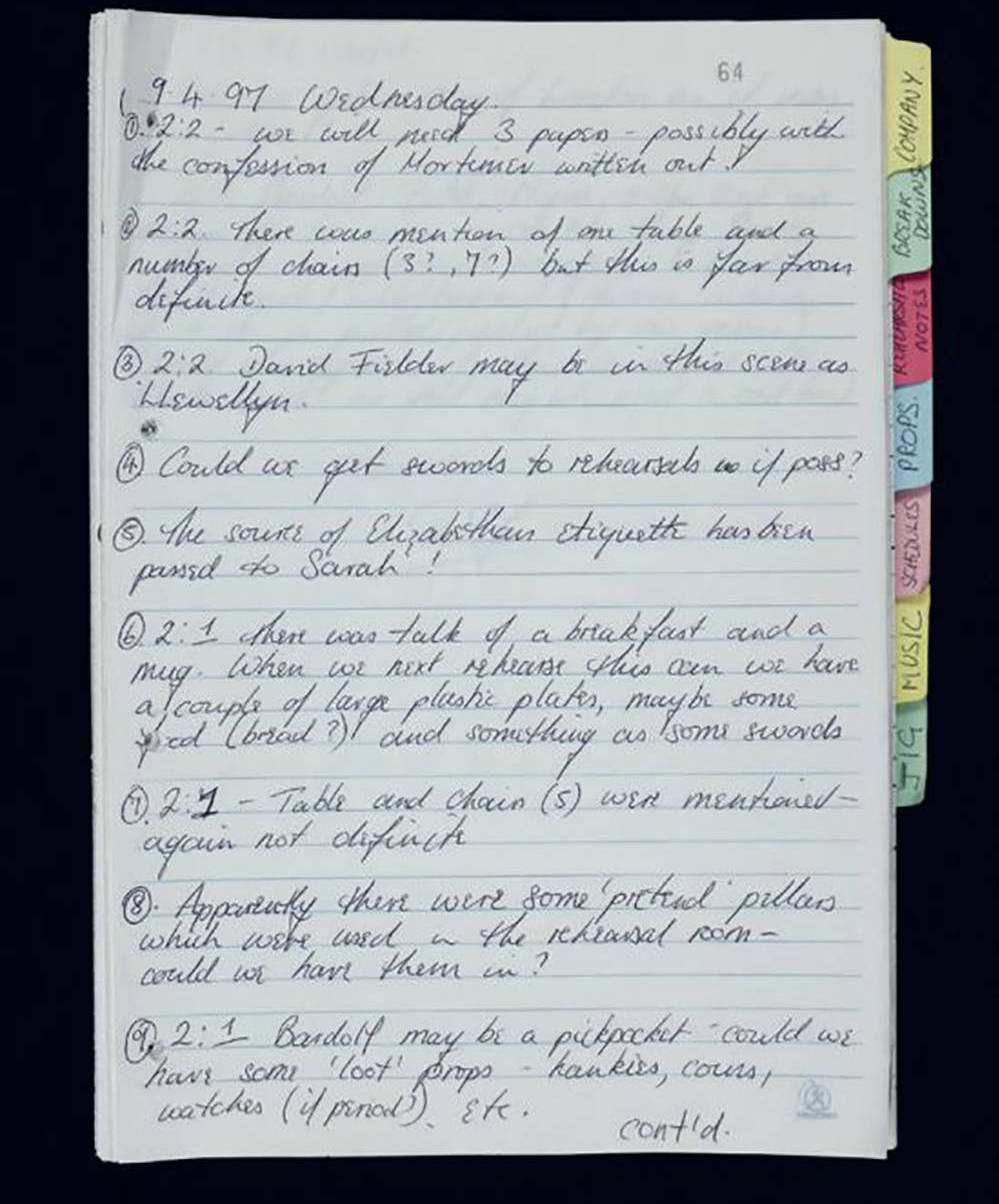 64
9.4.97 Wednesday.
①. 2:2 - we will need 3 papers - possibly with
the confession of Mortimer written out?
② 2:2. There was mention of one table and a
number of chairs (3?, 7?) but this is far from
definite.
③ 2:2. David Fielder may be in this scene as
Llewellyn.
④ Could we get swords to rehearsals if poss?
⑤. The source of Elizabethan Etiquette has been
passed to Sarah!
⑥. 2:1 there was talk of a breakfast and a
mug. When we next rehearse this can we have
a couple of large plastic plates, maybe some
food (bread?) and something as some swords
⑦. 2:1 - Table and chair(s) were mentioned -
again not definite
⑧. Apparently there were some 'pretend' pillars
which were used in the rehearsal room -
could we have them in?
⑨. 2:1 Bardolf may be a pickpocket - could we
have some 'loot' props - hankies, coins,
watches (if period?). Etc.
cont'd.
COMPANY.
BREAK
DOWNS
REHEARSAL
NOTES
PROPS.
SCHEDULES
MUSIC
JIG